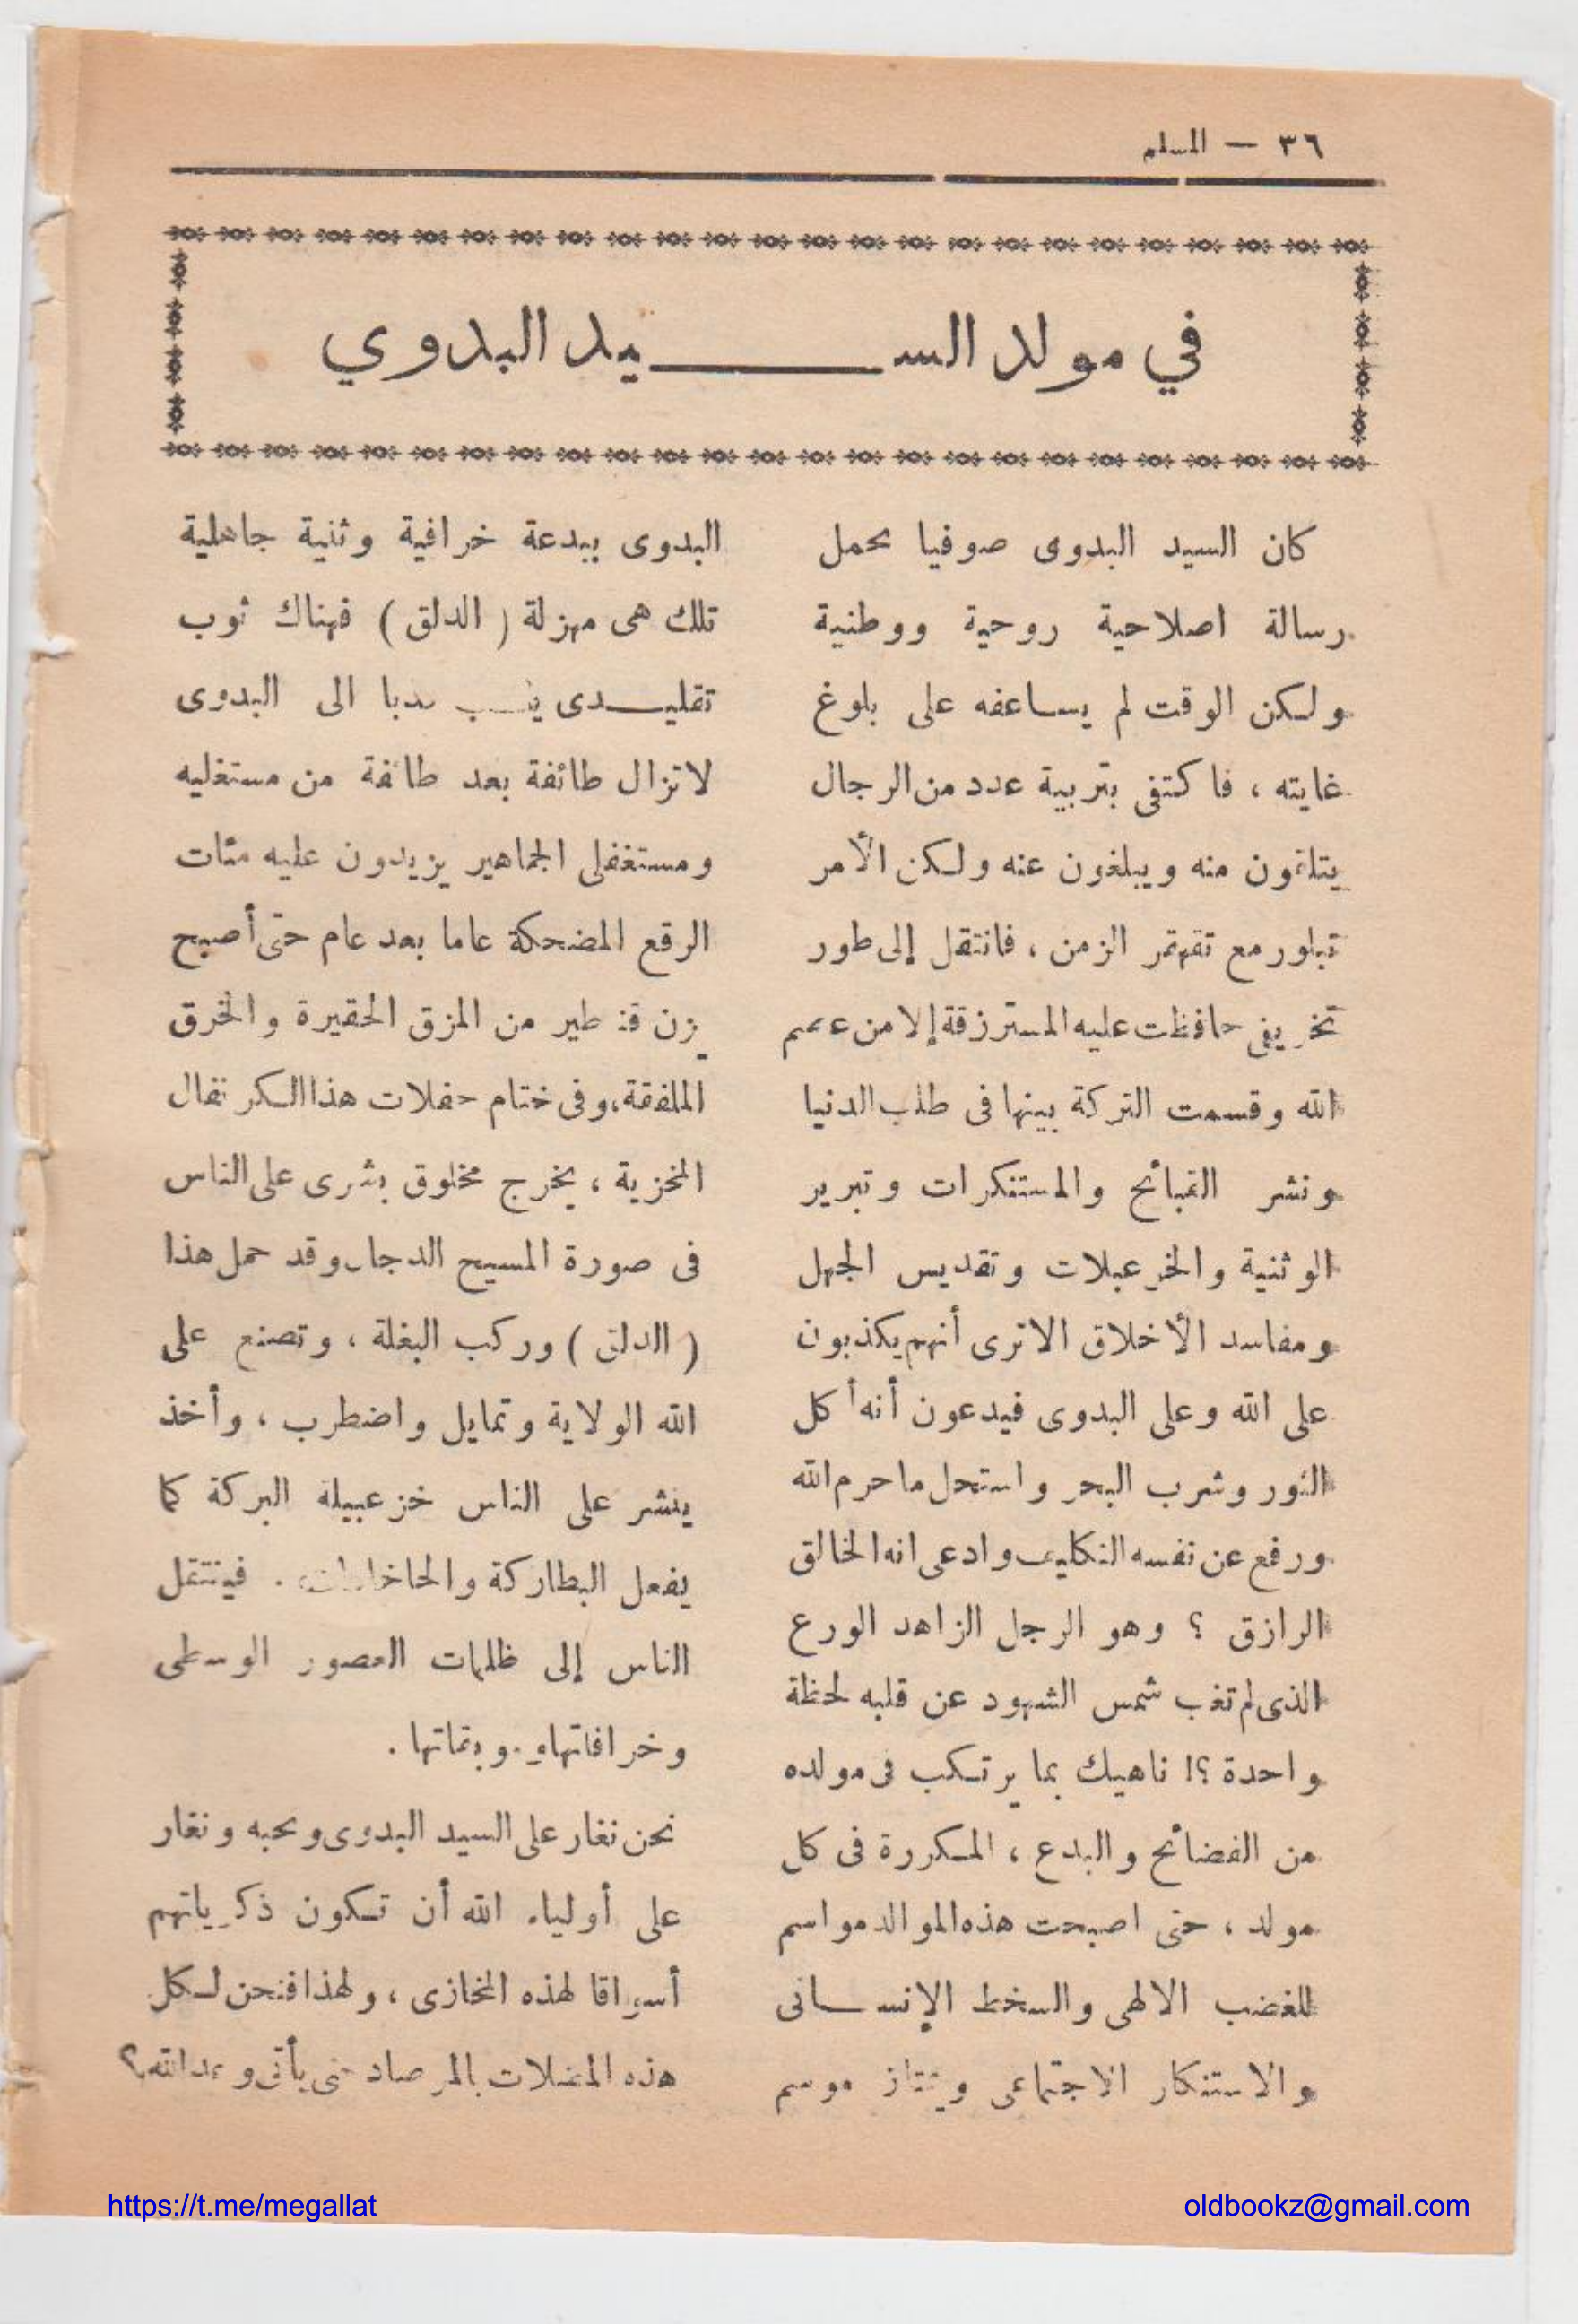 ٣٦ — المسلم
في مولد الســــيد البدوي
كان السيد البدوى صوفيا يحمل
رسالة اصلاحية روحية ووطنية
ولكن الوقت لم يساعفه على بلوغ
غايته ، فاكتفى بتربية عدد من الرجال
يتلقون منه ويبلغون عنه ولكن الأمر
تبلور مع تقهقر الزمن ، فانتقل إلى طور
تخريفى حافظت عليه المسترزقة إلا من عصم
الله وقسمت التركة بينها فى طلب الدنيا
ونشر القبائح والمستنكرات وتبرير
الوثنية والخزعبلات وتقديس الجهل
ومفاسد الأخلاق الاترى أنهم يكذبون
على الله وعلى البدوى فيدعون أنه أكل
الثور وشرب البحر واستحل ما حرم الله
ورفع عن نفسه التكليف وادعى انه الخالق
الرازق ؟ وهو الرجل الزاهد الورع
الذى لم تغب شمس الشهود عن قلبه لحظة
واحدة ؟! ناهيك بما يرتكب فى مولده
من الفضائح والبدع ، المكررة فى كل
مولد ، حتى اصبحت هذه الموالد مواسم
للغضب الالهى والسخط الإنسانى
والاستنكار الاجتماعى ويمتاز موسم
البدوى ببدعة خرافية وثنية جاهلية
تلك هى مهزلة ( الدلق ) فهناك ثوب
تقليدى ينسب الى البدوى
لاتزال طائفة بعد طائفة من مستغليه
ومستغفلى الجماهير يزيدون عليه مئات
الرقع المضحكة عاما بعد عام حتى أصبح
يزن قناطير من المزق الحقيرة والخرق
الملفقة، وفى ختام حفلات هذا الكرنفال
المخزية ، يخرج مخلوق بشرى على الناس
فى صورة المسيح الدجال وقد حمل هذا
( الدلق ) وركب البغلة ، وتصنع على
الله الولاية وتمايل واضطرب ، وأخذ
ينشر على الناس خزعبيلة البركة كما
يفعل البطاركة والحاخامات . فينتقل
الناس إلى ظلمات العصور الوسطى
وخرافاتها .
نحن نغار على السيد البدوى ونحبه ونغار
على أولياء الله أن تكون ذكرياتهم
أسواقا لهذه المخازى ، ولهذا فنحن لكل
هذه المضلات بالمرصاد حتى يأتى وعد الله ؟
https://t.me/megallat
oldbookz@gmail.com